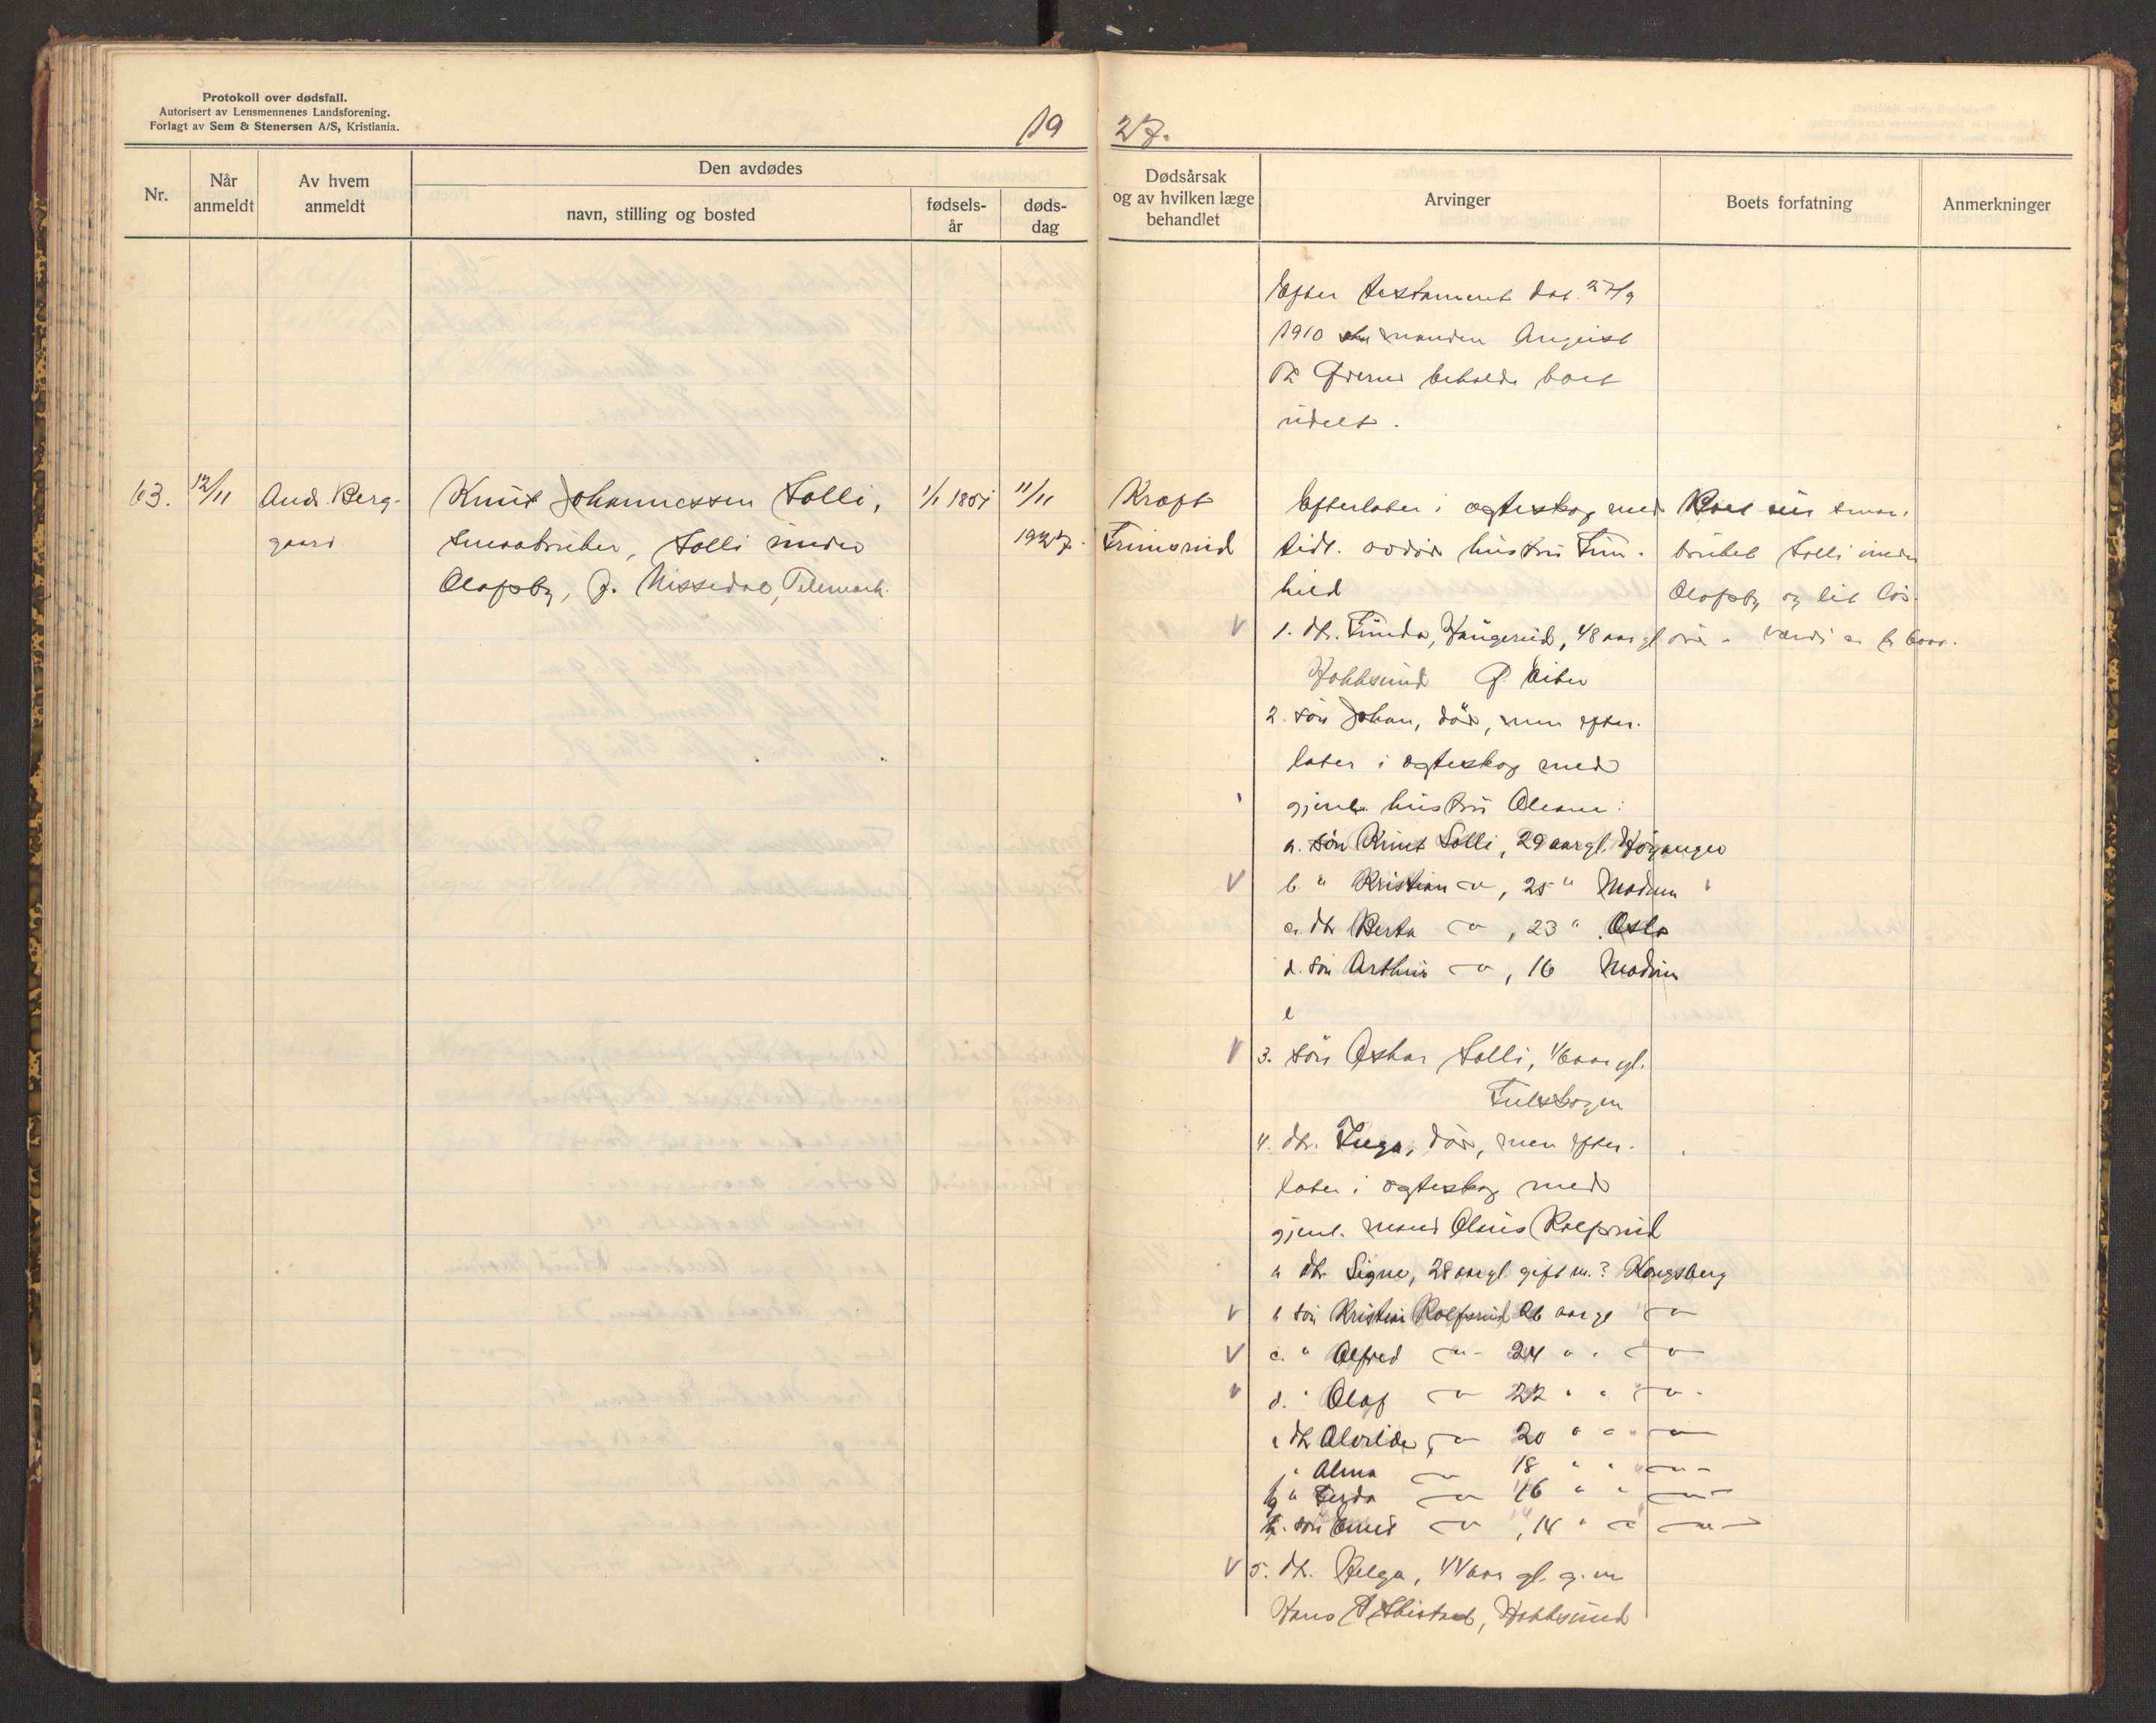 Protokoll over dødsfall.
Autorisert av Lensmennenes Landsforening.
Forlagt av Sem & Stenersen A/S, Kristiania.
19 27.
Nr.
Når anmeldt
Av hvem anmeldt
Den avdødes
navn, stilling og bosted
fødsels-år
døds-dag
Dødsårsak og av hvilken læge behandlet
Arvinger
Boets forfatning
Anmerkninger
Efter testament dat. 27/9
1910 skal manden August
Th Øderud beholde boet
udelt.
63. 12/11 And. Berg-
gaard
Knut Johannessen Solli,
smaabruker, Solli under
Olafsby, f. Nissedal, Telemark.
1/1 1851
11/11
1927.
Kræft
Frimsrud
Efterlater i ægteskap med
tidl. avdød hustru Gun-
hild
1. dtr. Gunda, Haugerud, 48 aar gl
Hokksund Ø. Eiker
2. søn Johan, død, men efter-
later i ægteskap med
gjenl. hustru Oleane:
a. søn Knut Solli, 29 aar gl. Høyanger
b. " Kristian " , 25 " Modum
c. dtr Berta " , 23 " Oslo
d. søn Arthur " , 16 Modum
e
3. søn Oskar Solli, 46 aar gl.
Fulskogen
4. dtr. Inga, død, men efter-
later i ægteskap med
gjenl. mand Olaus Rolfsrud
a dtr Signe, 28 aar gl. gift m. ? Kongsberg
b søn Kristian Rolfsrud 26 aar gl "
c. " Alfred " 24 " " "
d. " Olaf " 22 " " "
e dtr Alvilde, " 20 " " "
f " Alma " 18 " " "
g " Gerda " 16 " " "
h. søn " , 14 " " "
5. dtr. Helga, 44 aar gl. g. m
Hans , Hokksund
Boet eier smaa-
bruket Solli under
Olafsby og lit løs-
øre - værdi ca kr 6000.